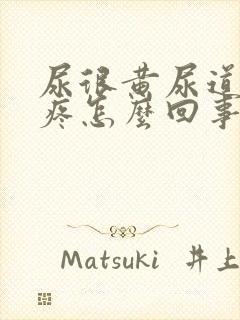 尿很黄尿道
疼怎麼回事
Matsuki 井上